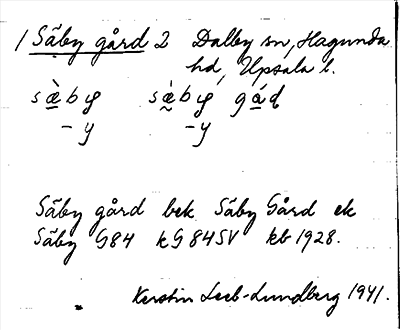 1 Säby gård 2 Dalby sn, Hagunda
hd, Upsala l.
sæ̀by sæ̀by gǻɖ
-y -y
Säby gård bek Säby Gård ek
Säby G84 kG84SV kb 1928.
Kerstin Leeb-Lundberg 1941.